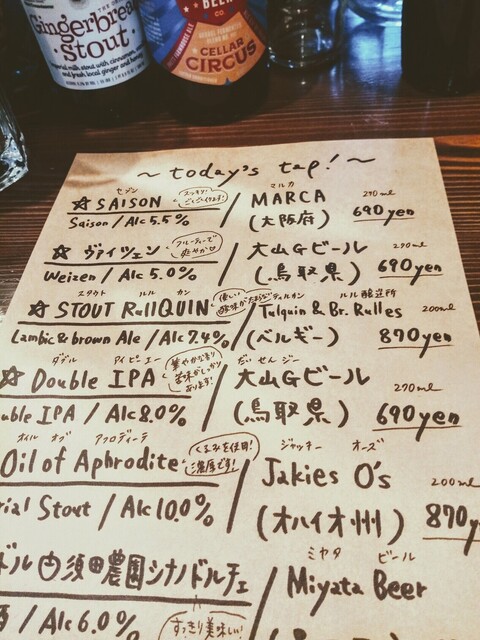 Gingerbread
Stout
BEER
CO.
CELLAR
CIRCUS
~ today's tap! ~
セゾン
☆ SAISON
Saison / Alc 5.5%
マルカ
MARCA
(大阪府)
290ml
690yen
☆ ヴァイツェン
フルーティーで
爽やか♡
Weizen / Alc 5.0%
大山Gビール
(鳥取県)
290ml
690yen
スタウト ルル カン
☆ STOUT RullQUIN
Lambic & brown Ale / Alc 7.4%
ルル醸造所
Tilquin & Br. Rulles
(ベルギー)
200ml
870yen
ダブル アイピーエー
☆ Double IPA
華やかな香り
苦味がしっかり
あります!
uble IPA / Alc 8.0%
だいせんジー
大山Gビール
(鳥取県)
270ml
690yen
オイル オブ アフロディーテ
Oil of Aphrodite
くるみを使用!
濃厚です!
rial Stout / Alc 10.0%
ジャッキー オーズ
Jakies O's
(オハイオ州)
200ml
870y
ドル 由須田農園シナノドルチェ
/ Alc 6.0%
すっきり美味しい
ミヤタ ビール
Miyata Beer